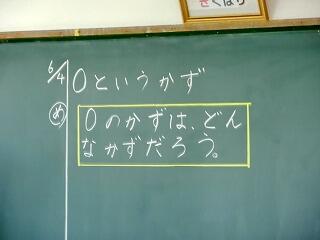 きくばり
6/4
0というかず
め
0のかずは、どん
なかずだろう。